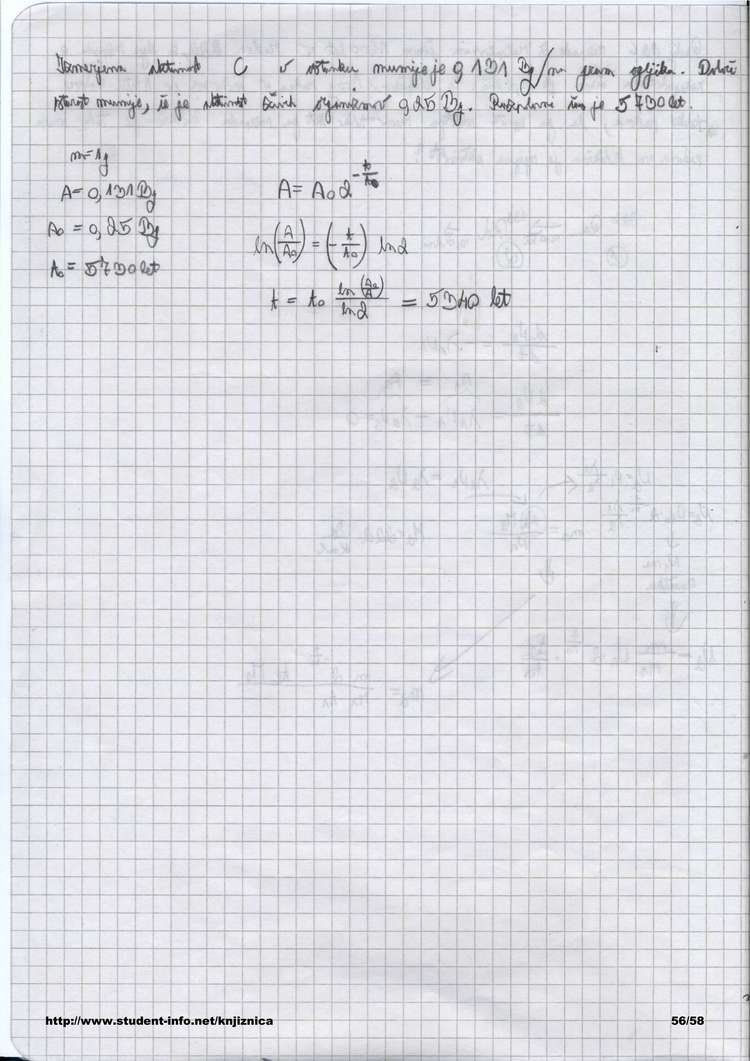 Izmerjena aktivnost C v ostanku mumije je 0,131 Bq/na gram ogljika. Določi
starost mumije, če je aktivnost živih organizmov 0,25 Bq. Razpolovni čas je 5730 let.
m=1g
A = 0,131 Bq
A₀ = 0,25 Bq
t₀ = 5730 let
A = A₀ 2^(-t/t₀)
ln(A/A₀) = (-t/t₀) ln2
t = t₀ ln(A₀/A)/ln2 = 5340 let
http://www.student-info.net/knjiznica 56/58